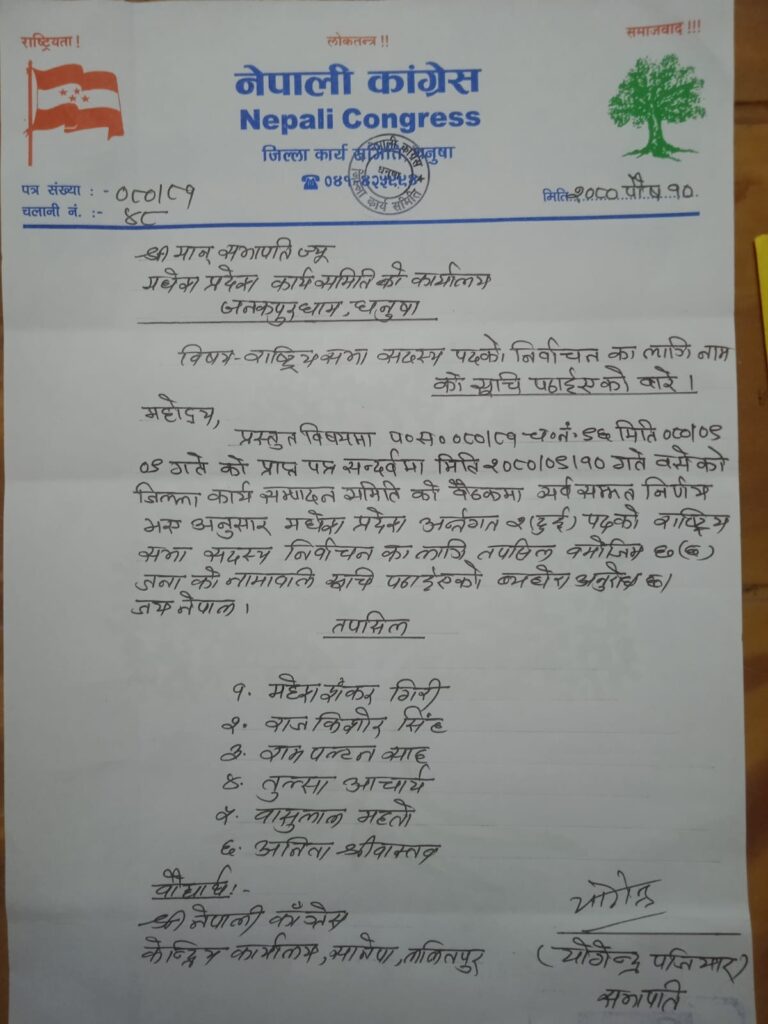 राष्ट्रियता !
लोकतन्त्र !!
समाजवाद !!!
नेपाली कांग्रेस
Nepali Congress
जिल्ला कार्य समिति धनुषा
पत्र संख्या : - ०८०/८१
चलानी नं. :- ४८
मिति २०८० पौष १०
श्रीमान् सभापति ज्यू
मधेस प्रदेस कार्य समिति को कार्यालय
जनकपुरधाम, धनुषा
विषय- राष्ट्रिय सभा सदस्य पदको निर्वाचन का लागि नाम
को सूचि पठाईएको बारे ।
महोदय,
प्रस्तुत विषयमा प०स० ०८०/८१ च०नं. ९६ मिति ०८०/०९
०९ गते को प्राप्त पत्र सन्दर्वमा मिति २०८०/०९/१० गते बसेको
जिल्ला कार्य सम्पादन समिति को बैठकमा सर्व सम्मत निर्णय
भए अनुसार मधेस प्रदेस अर्न्तगत २(दुई) पदको राष्ट्रिय
सभा सदस्य निर्वाचन का लागि तपसिल बमोजिम
जना को नामावलि सूचि पठाईएको ब्यहोरा अनुरोध छ।
जय नेपाल ।
तपसिल
१. महेस शंकर गिरी
२. राज किशोर सिंह
३. राम पल्टन साह
४. तुल्सा आचार्य
५. महतो
६. अनिता श्रीवास्तव
बोधार्थ:-
श्री नेपाली काँग्रेस
केन्द्रिय कार्यालय, सानेपा, ललितपुर
योगेन्द्र
(योगेन्द्र पजियार)
सभापति